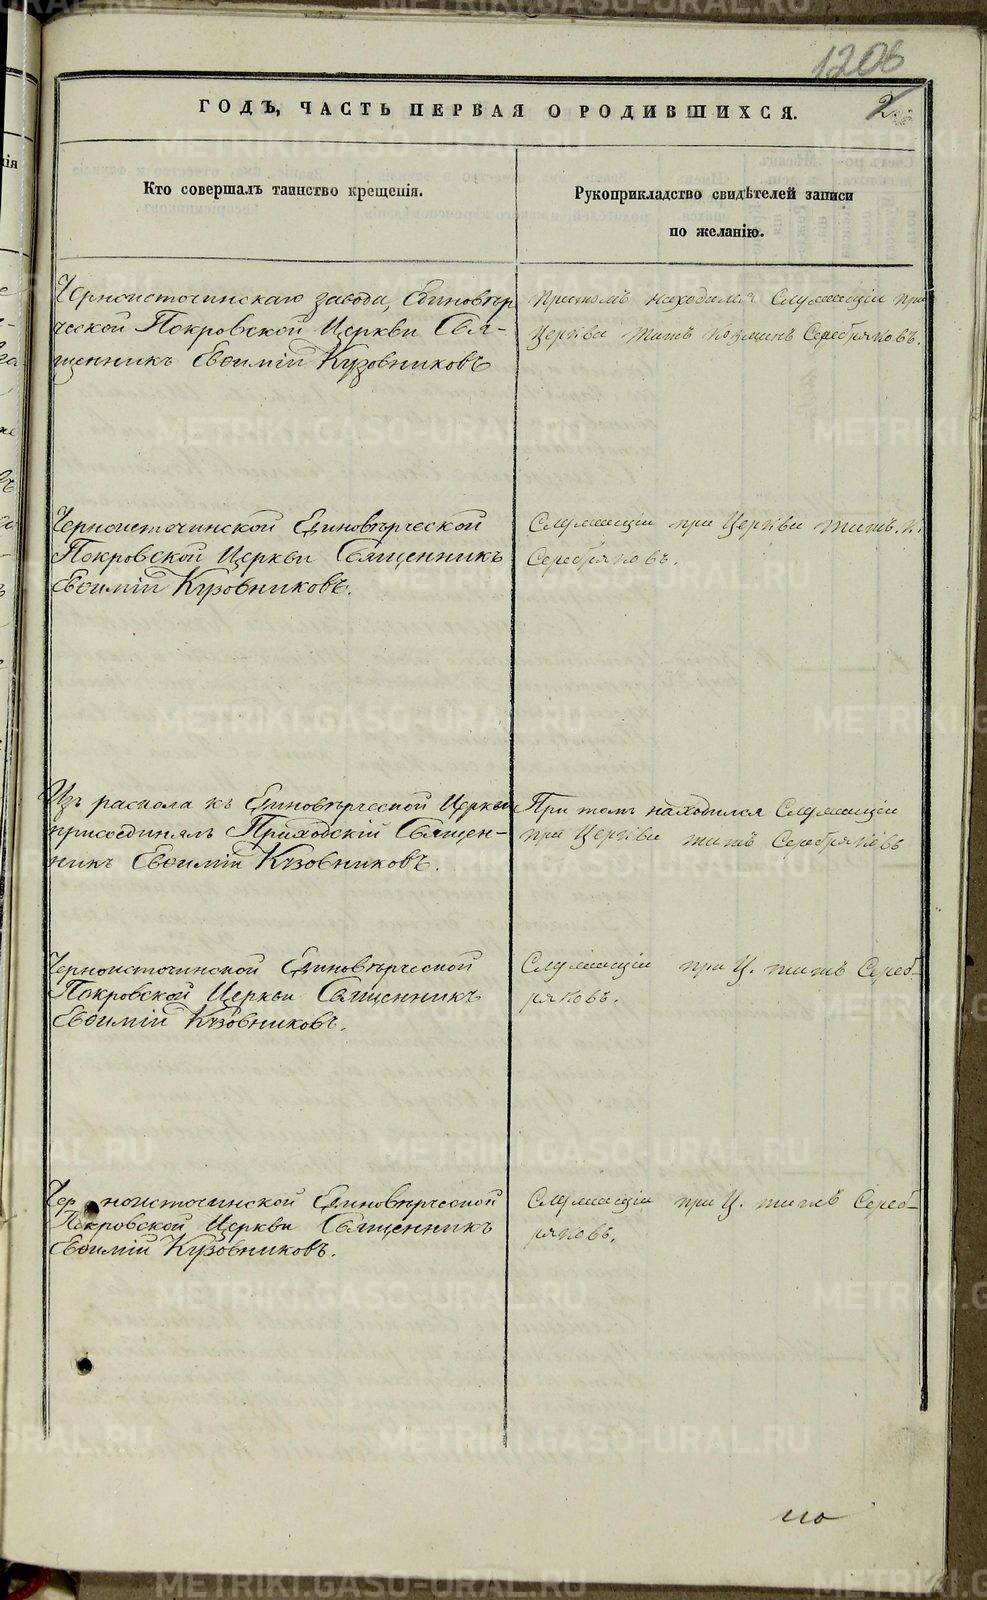 1206
2
ГОДЪ, ЧАСТЬ ПЕРВАЯ О РОДИВШИХСЯ.
Кто совершалъ таинство крещенія.
Рукоприкладство свидѣтелей записи
по желанію.
Черноисточинскаго завода, Единовѣр
ческой Покровской Церкви Свя-
щенникъ Евѳимій Кузовниковъ
Притомъ находился Служащій при
Церкви Серебряковъ.
Черноисточинской Единовѣрческой
Покровской Церкви Священникъ
Евѳимій Кузовниковъ.
Служащій при Церкви
Серебряковъ.
Изъ раскола къ Единовѣрческой Церкви
присоединялъ Приходскій Священ-
никъ Евѳимій Кузовниковъ.
При томъ находился Служащій
при Церкви Серебряковъ
Черноисточинской Единовѣрческой
Покровской Церкви Священникъ
Евѳимій Кузовниковъ.
Служащій при Ц. Сереб-
ряковъ.
Черноисточинской Единовѣрческой
Покровской Церкви Священникъ
Евѳимій Кузовниковъ.
Служащій при Ц. Сереб-
ряковъ.
METRIKI.GASO-URAL.RU